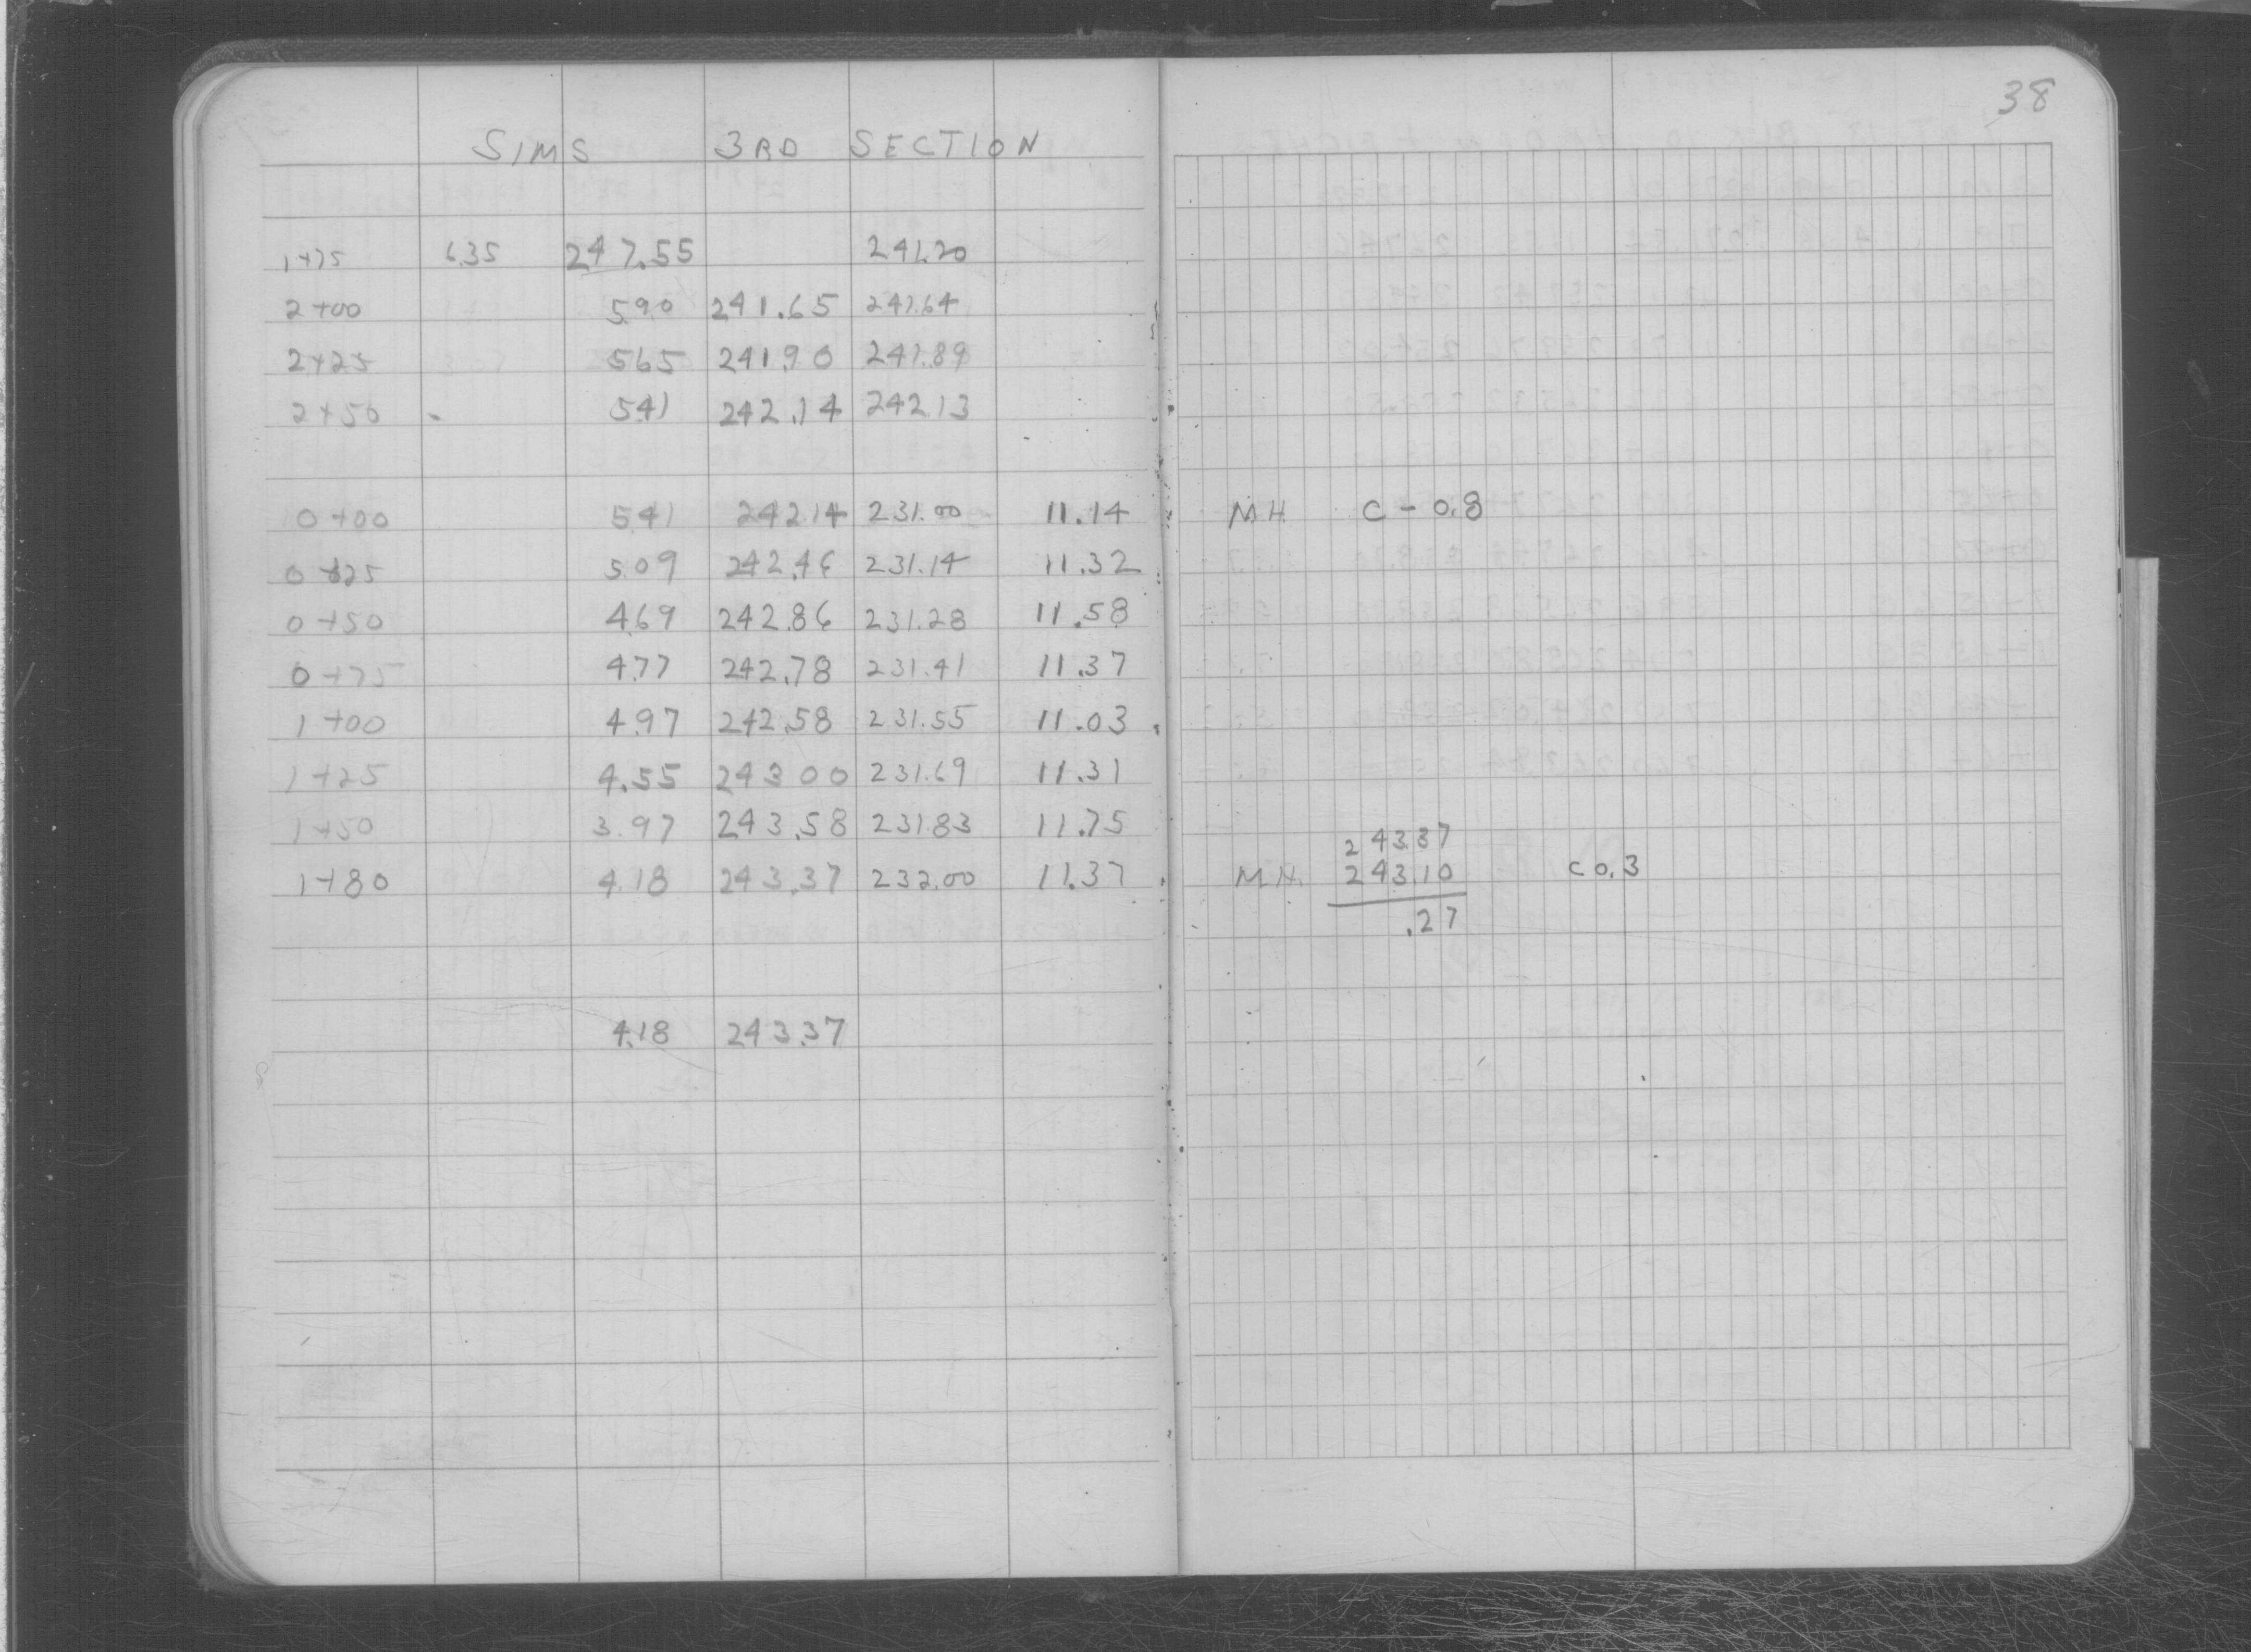 38
SIMS 3RD SECTION
1+75 6.35 247.55 241.20
2+00 5.90 241.65 241.64
2+25 5.65 241.90 241.89
2+50 5.41 242.14 242.13
0+00 5.41 242.14 231.00 11.14 MH C-0.8
0+25 5.09 242.46 231.14 11.32
0+50 4.69 242.86 231.28 11.58
0+75 4.77 242.78 231.41 11.37
1+00 4.97 242.58 231.55 11.03
1+25 4.55 243.00 231.69 11.31
1+50 3.97 243.58 231.83 11.75
243.37
1+80 4.18 243.37 232.00 11.37 MH 243.10 C 0.3
.27
4.18 243.37